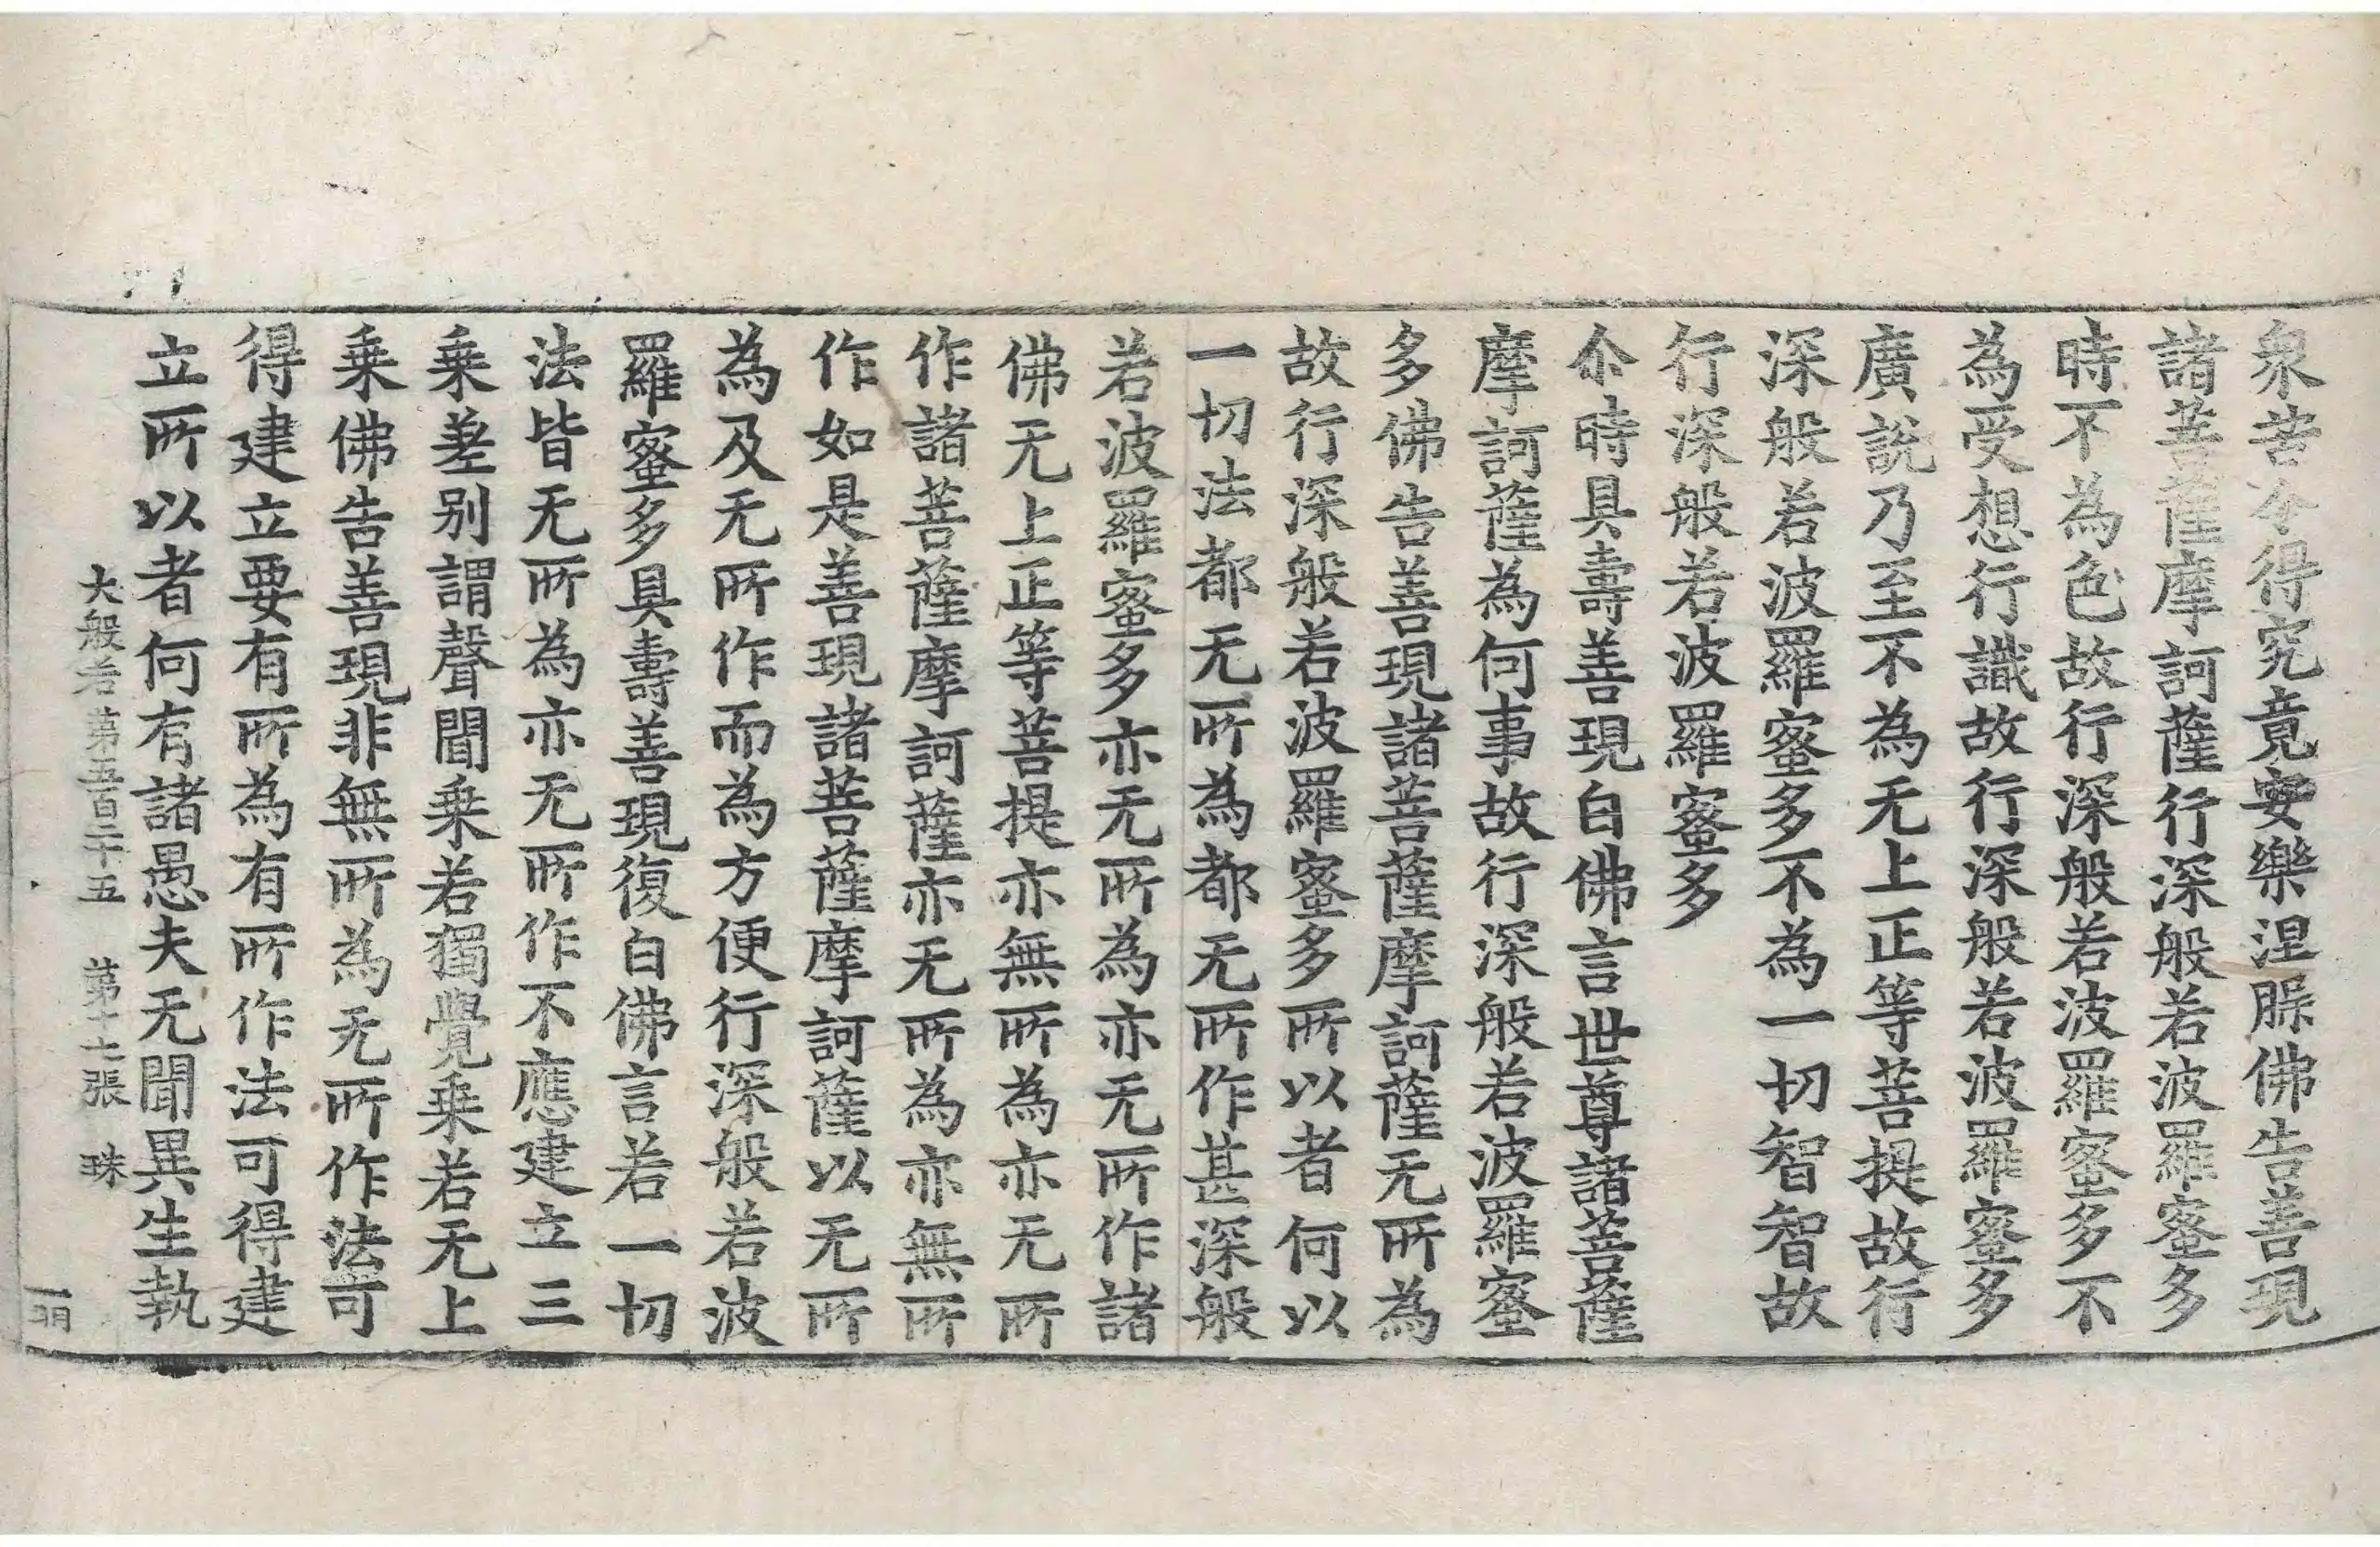 衆苦令得究竟安樂涅脲佛告善現
諸菩薩摩訶薩行深般若波羅蜜多
時不為色故行深般若波羅蜜多不
為受想行識故行深般若波羅蜜多
廣說乃至不為无上正等菩提故行
深般若波羅蜜多不為一切智智故
行深般若波羅蜜多
尒時具壽善現白佛言世尊諸菩薩
摩訶薩為何事故行深般若波羅蜜
多佛告善現諸菩薩摩訶薩无所為
故行深般若波羅蜜多所以者何以
一切法都无所為都无所作甚深般
若波羅蜜多亦无所為亦无所作諸
佛无上正等菩提亦無所為亦无所
作諸菩薩摩訶薩亦无所為亦無所
作如是善現諸菩薩摩訶薩以无所
為及无所作而為方便行深般若波
羅蜜多具壽善現復白佛言若一切
法皆无所為亦无所作不應建立三
乗差别謂聲聞乗若獨覺乗若无上
乗佛告善現非無所為无所作法可
得建立要有所為有所作法可得建
立所以者何有諸愚夫无聞異生執
大般若第五百二十五 第十七張 珠